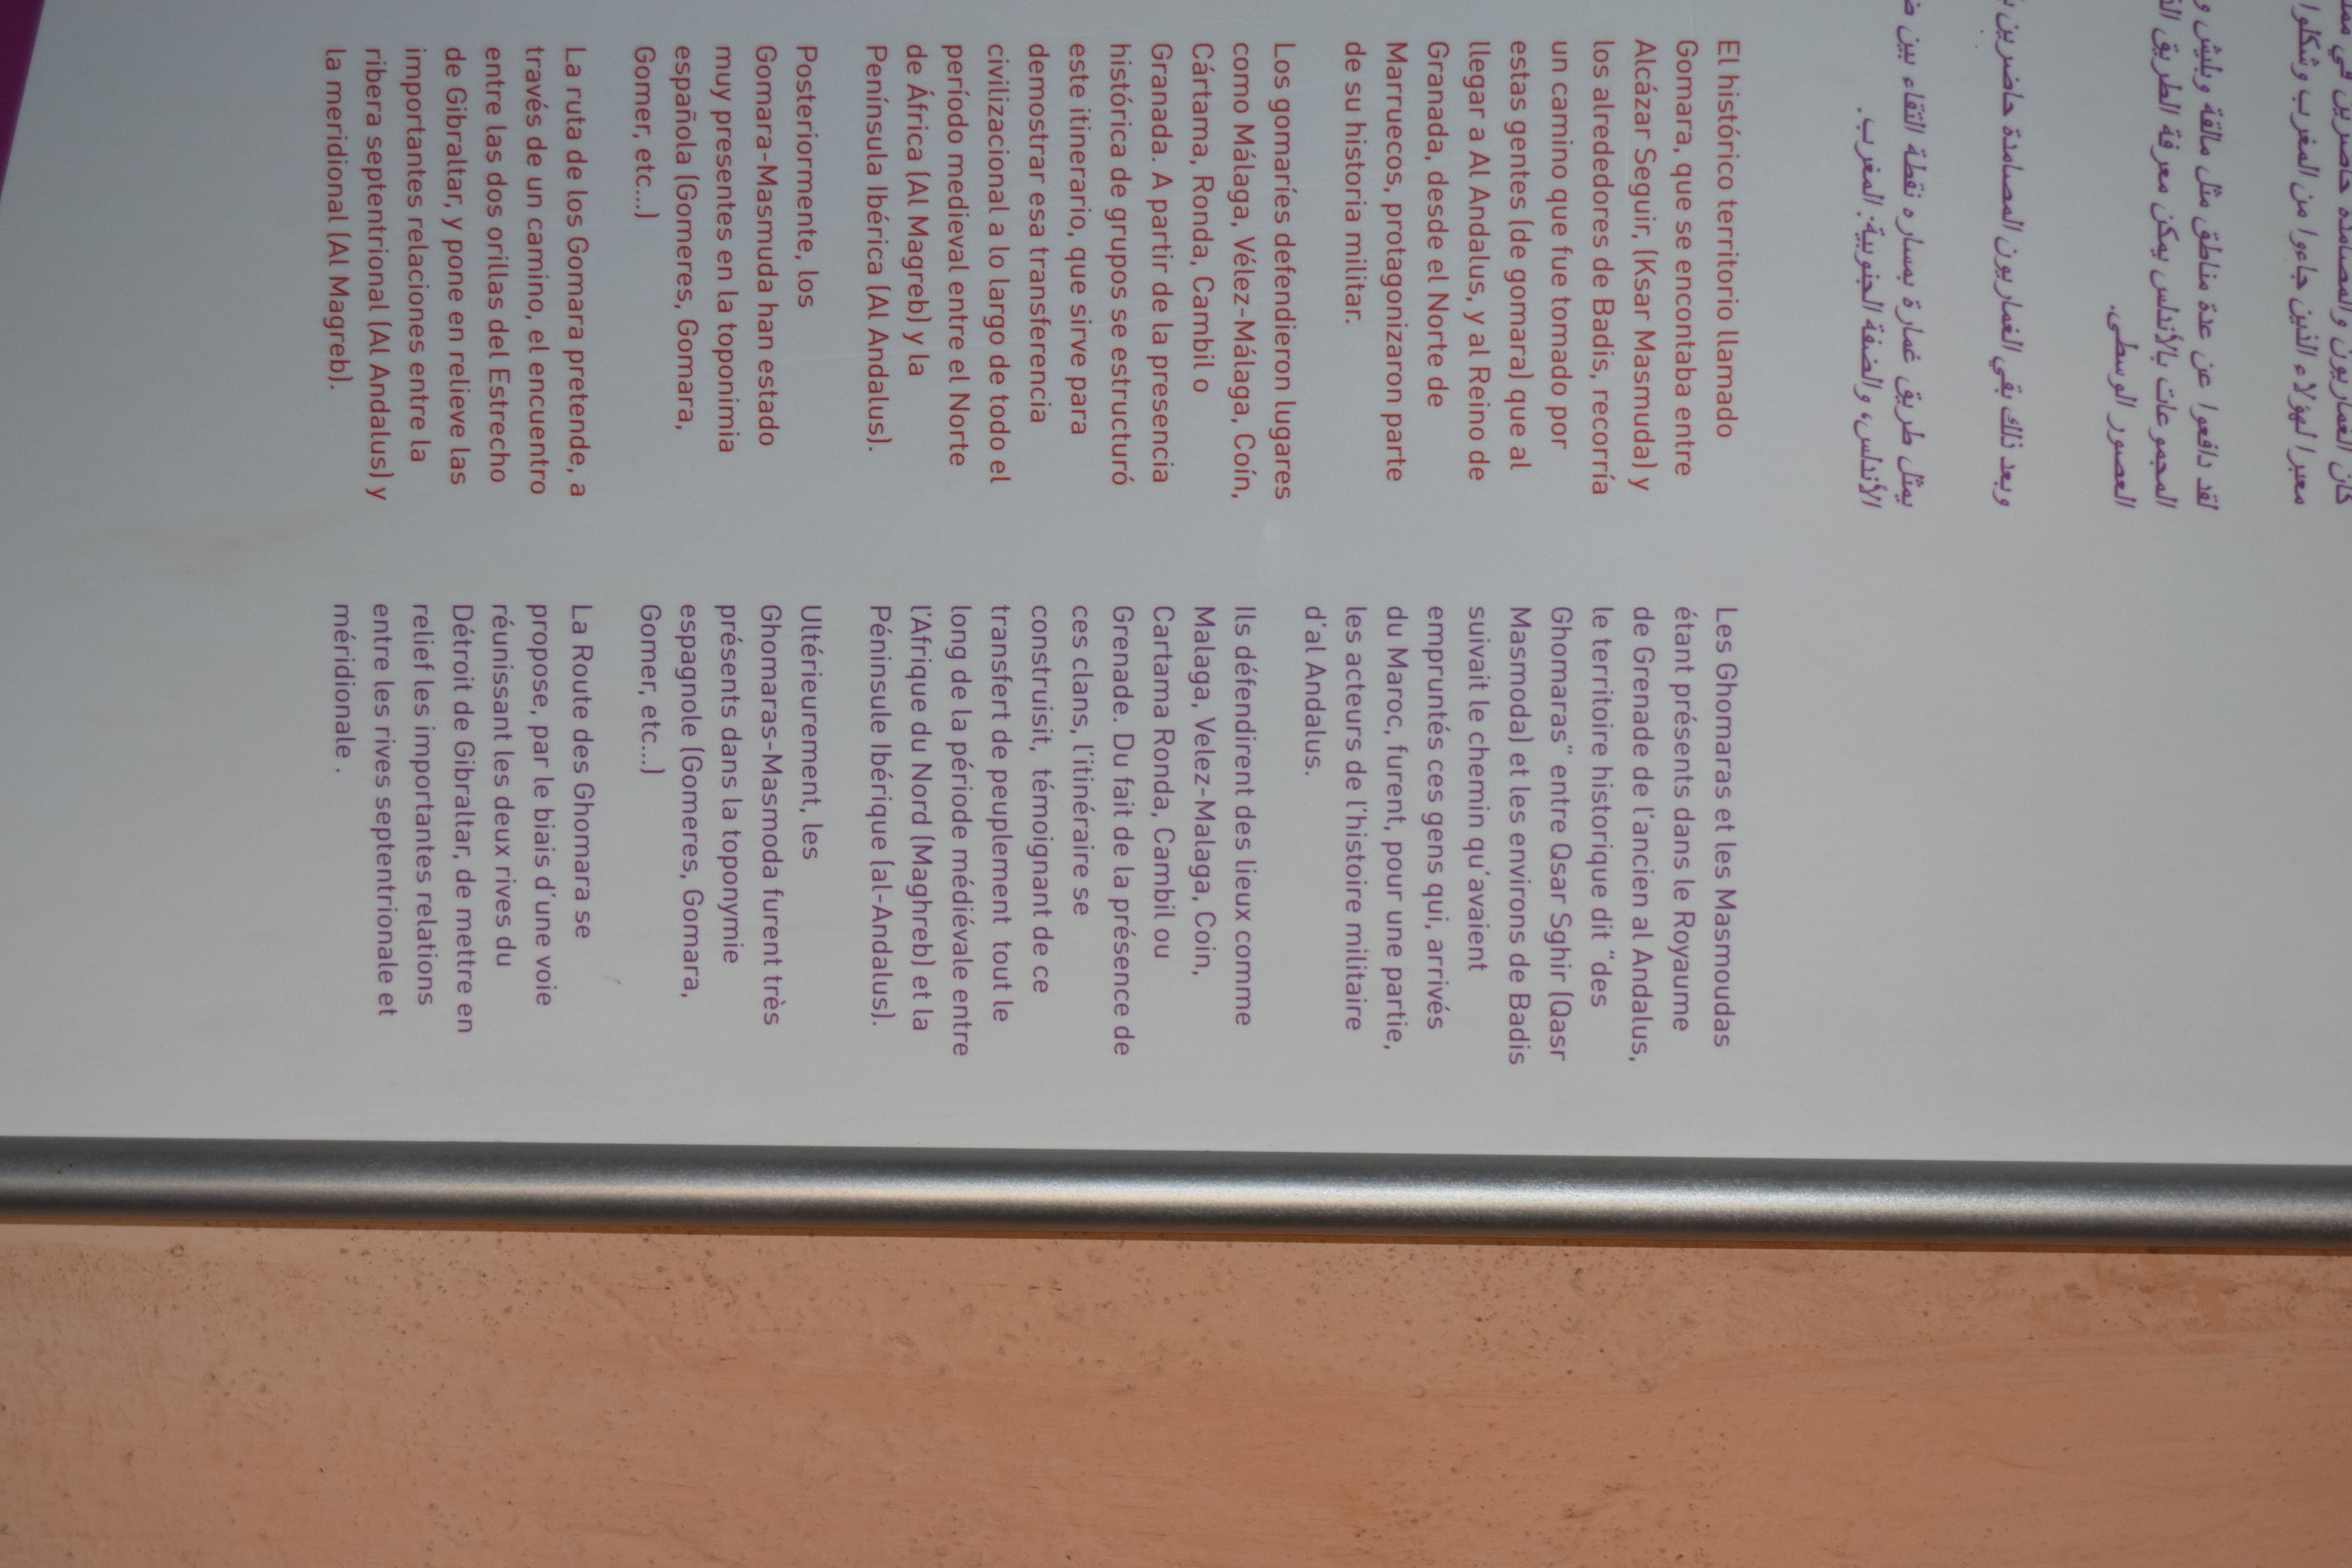 كان الغماريون والمصامدة حاضرين في
معبرا لهؤلاء الذين جاءوا من المغرب وشكلوا
لقد دافعوا عن عدة مناطق مثل مالقة وبليش و
المجموعات بالأندلس يمكن معرفة الطريق
العصور الوسطى.
وبعد ذلك بقي الغماريون المصامدة حاضرين
يمثل طريق غمارة بمساره نقطة التقاء بين
الأندلس، والضفة الجنوبية: المغرب.
El histórico territorio llamado
Gomara, que se encontaba entre
Alcázar Seguir, (Ksar Masmuda) y
los alrededores de Badis, recorría
un camino que fue tomado por
estas gentes (de gomara) que al
llegar a Al Andalus, y al Reino de
Granada, desde el Norte de
Marruecos, protagonizaron parte
de su historia militar.
Los gomaríes defendieron lugares
como Málaga, Vélez-Málaga, Coín,
Cártama, Ronda, Cambil o
Granada. A partir de la presencia
histórica de grupos se estructuró
este itinerario, que sirve para
demostrar esa transferencia
civilizacional a lo largo de todo el
período medieval entre el Norte
de África (Al Magreb) y la
Península Ibérica (Al Andalus).
Posteriormente, los
Gomara-Masmuda han estado
muy presentes en la toponimia
española (Gomeres, Gomara,
Gomer, etc...)
La ruta de los Gomara pretende, a
través de un camino, el encuentro
entre las dos orillas del Estrecho
de Gibraltar, y pone en relieve las
importantes relaciones entre la
ribera septentrional (Al Andalus) y
la meridional (Al Magreb).
Les Ghomaras et les Masmoudas
étant présents dans le Royaume
de Grenade de l'ancien al Andalus,
le territoire historique dit "des
Ghomaras" entre Qsar Sghir (Qasr
Masmoda) et les environs de Badis
suivait le chemin qu'avaient
empruntés ces gens qui, arrivés
du Maroc, furent, pour une partie,
les acteurs de l'histoire militaire
d'al Andalus.
Ils défendirent des lieux comme
Malaga, Velez-Malaga, Coin,
Cartama Ronda, Cambil ou
Grenade. Du fait de la présence de
ces clans, l'itinéraire se
construisit, témoignant de ce
transfert de peuplement tout le
long de la période médiévale entre
l'Afrique du Nord (Maghreb) et la
Péninsule Ibérique (al-Andalus).
Ultérieurement, les
Ghomaras-Masmoda furent très
présents dans la toponymie
espagnole (Gomeres, Gomara,
Gomer, etc...)
La Route des Ghomara se
propose, par le biais d'une voie
réunissant les deux rives du
Détroit de Gibraltar, de mettre en
relief les importantes relations
entre les rives septentrionale et
méridionale .